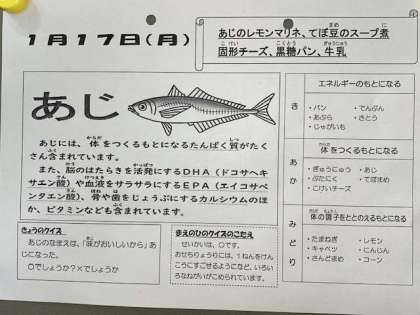 1月17日(月)
あじのレモンマリネ、てぼ豆のスープ煮
固形チーズ、黒糖パン、牛乳
あじ
あじには、体をつくるもとになるたんぱく質がた
くさん含まれています。
また、脳のはたらきを活発にするDHA(ドコサヘキ
サエン酸)や血液をサラサラにするEPA(エイコサペ
ンタエン酸)、骨や歯をじょうぶにするカルシウムのほ
か、ビタミンなども含まれています。
きょうのクイズ
あじのなまえは、「味がおいしいから」あ
じになった。
〇でしょうか?×でしょうか
まえのひのクイズのこたえ
せいかいは、〇です。
おせちりょうりには、1ねんをけん
こうにすごせるようになど、いろい
ろなねがいがこめられています。
き
エネルギーのもとになる
・パン ・でんぷん
・あぶら ・さとう
・じゃがいも
あか
体をつくるもとになる
・ぎゅうにゅう ・あじ
・ぶたにく ・てぼまめ
・こけいチーズ
みどり
体の調子をととのえるもとになる
・たまねぎ ・レモン
・キャベツ ・にんじん
・さんどまめ ・コーン